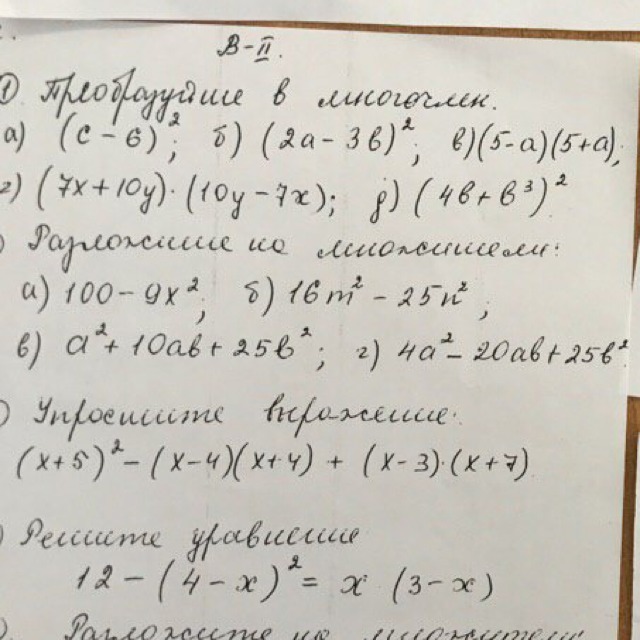 В-II.
1. Преобразуйте в многочлен.
а) (c-6)²; б) (2a-3b)²; в) (5-a)(5+a);
г) (7x+10y)·(10y-7x); д) (4b+b³)²
) Разложите на множители:
а) 100-9x²; б) 16m²-25n²;
в) a²+10ab+25b²; г) 4a²-20ab+25b²
) Упростите выражение:
(x+5)²-(x-4)(x+4)+(x-3)·(x+7)
) Решите уравнение
12-(4-x)²=x·(3-x)
). Разложите на множители: